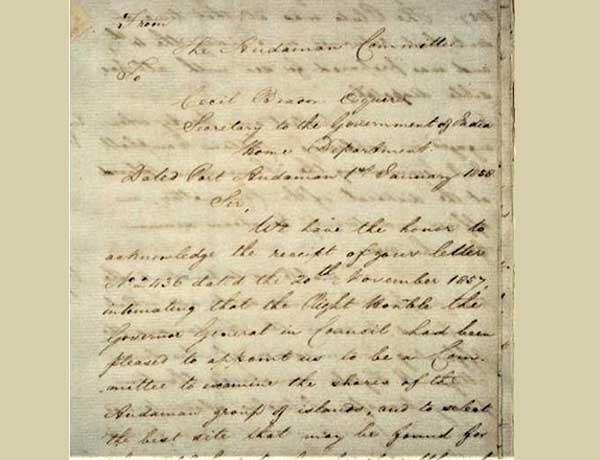 From
The Andaman Committee
To
Cecil Beadon Esquire
Secretary to the Government of India
Home Department
Dated Port Andaman 1st January 1858
Sir,
We have the honor to
acknowledge the receipt of your letter
No 2436 dated the 20th November 1857,
intimating that the Right Honble the
Governor General in Council had been
pleased to appoint us to be a Com-
mittee to examine the shores of the
Andaman group of islands, and to select
the best site that may be found for